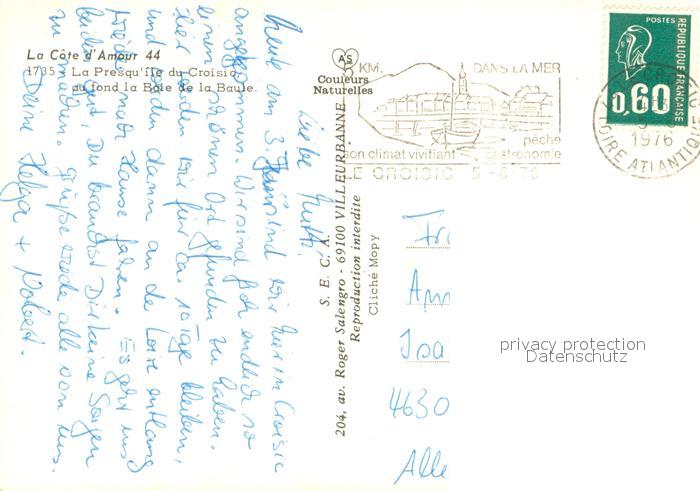 La Côte d'Amour 44
1735 - La Presqu'île du Croisic
au fond la Baie de la Baule.
AS
Couleurs
Naturelles
KM. DANS LA MER
pêche
bon climat vivifiant gastronomie
LE CROISIC 5-6-76
POSTES
REPUBLIQUE FRANÇAISE
0,60
1976
LOIRE ATLANTIQUE
Liebe Mutti,
heute am 3. Juni sind wir hier in Croisic
angekommen. Wir sind froh endlich so
einen schönen Ort gefunden zu haben.
Hier werden wir für ca 10 Tage bleiben,
und werden dann an der Loire entlang
wieder nach Hause fahren. Es geht uns
beiden gut, Du brauchst Dir keine Sorgen
zu machen. Grüße alle von uns.
Deine Helga + Robert.
S. E. C. A.
204, av. Roger Salengro - 69100 VILLEURBANNE
Reproduction interdite
Cliché Mopy
Fr
Ann
Isa
4630
Alle
privacy protection
Datenschutz